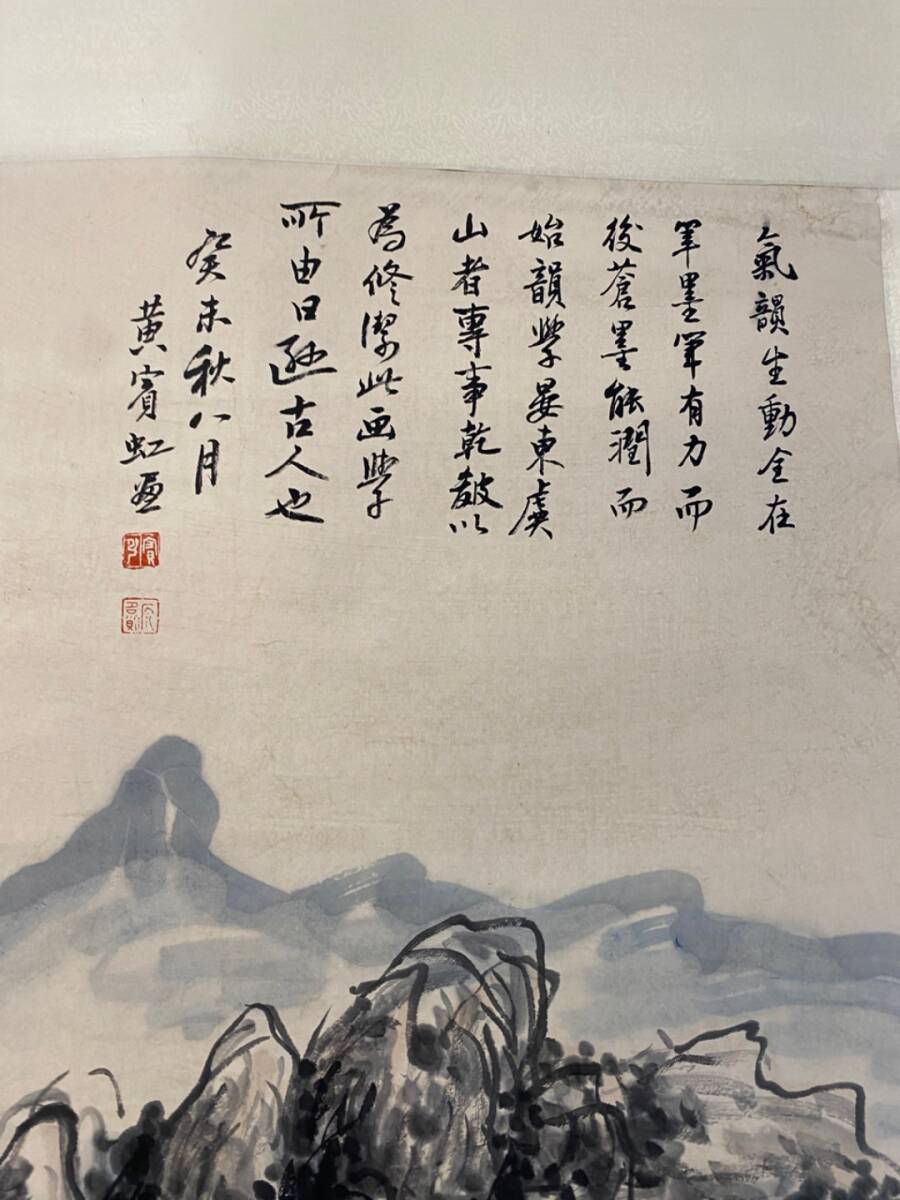 氣韻生動全在
筆墨筆有力而
後蒼墨能潤而
始韻學婁東虞
山者專事乾皴以
為修潔此画學
所由日遜古人也
癸未秋八月
黃賓虹画